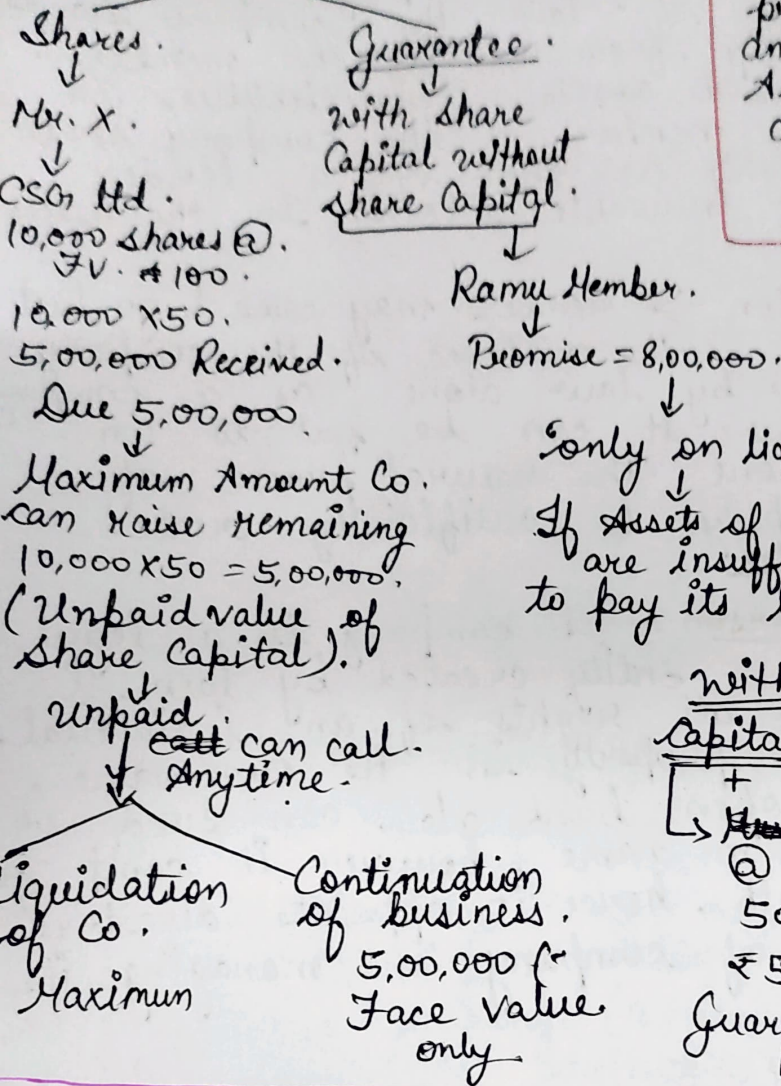 Shares.
Mr. X.
CSG Ltd.
10,000 shares @.
FV. 100.
10,000 X50.
5,00,000 Received.
Due 5,00,000
Maximum Amount Co.
can raise remaining
10,000 X50 = 5,00,000.
(Unpaid value of
Share Capital).
Unpaid.
call can call.
Anytime.
Liquidation
of Co.
Maximun
Continuation
of business.
5,00,000
Face Value
only
Guarantee.
with share
Capital without
share Capital.
Ramu Member.
Promise = 8,00,000.
only on
If Assets of
are
to pay its
@